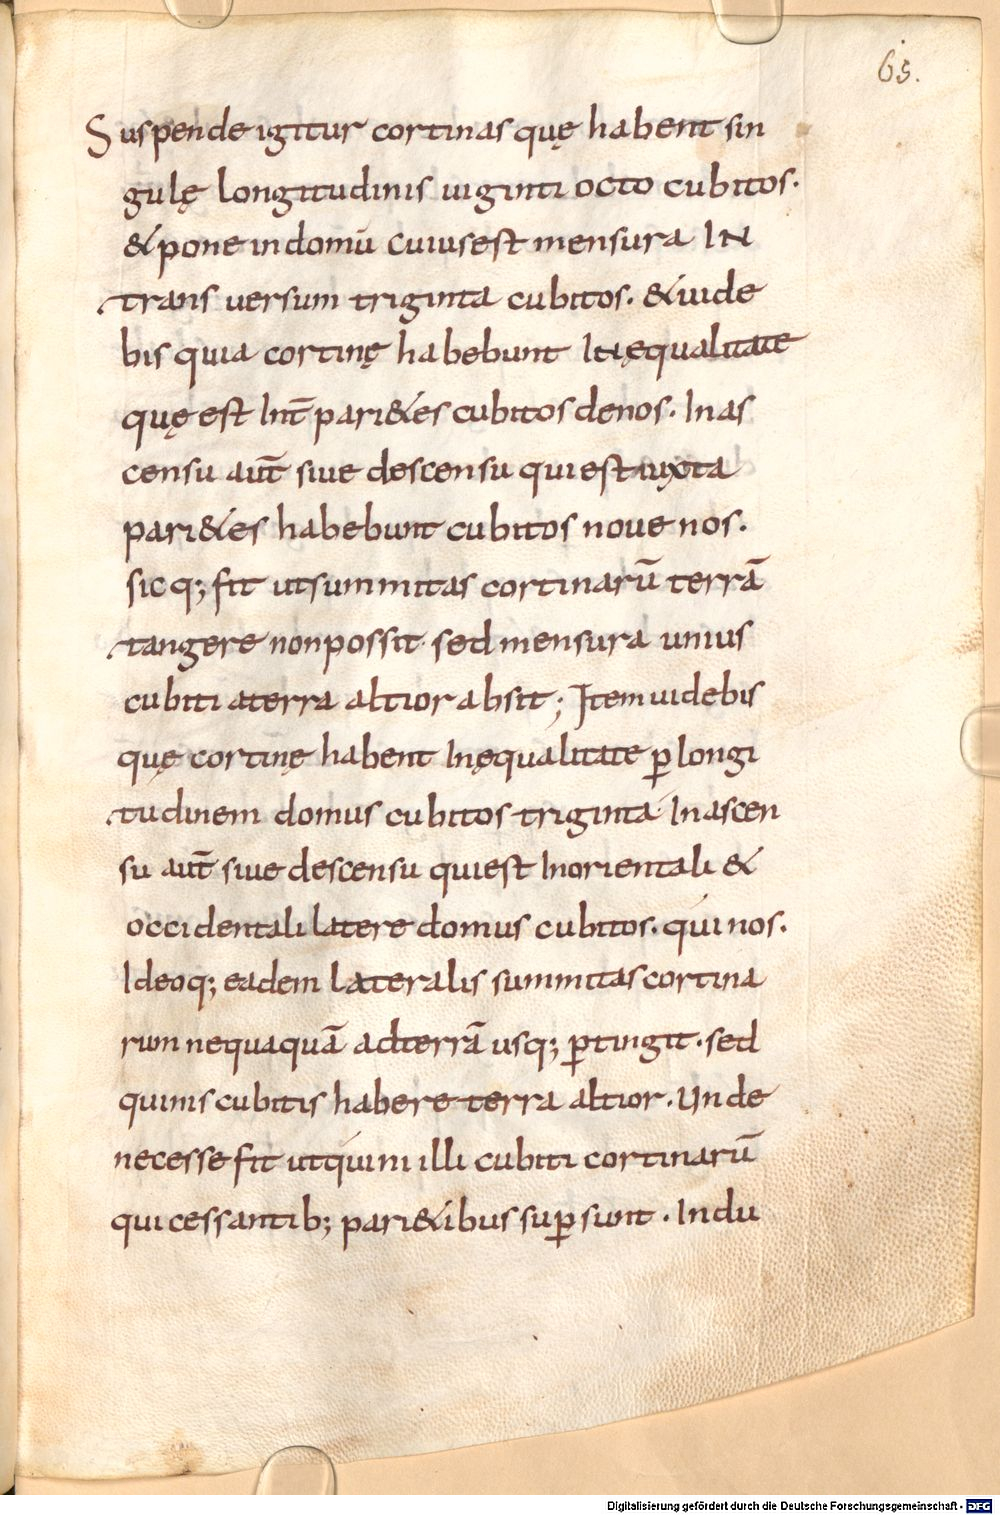 65.
Suspende igitur cortinas quę habent sin
gulę longitudinis uiginti octo cubitos.
& pone in domū cuius est mensura IN
trans uersum triginta cubitos. & uide
bis quia cortinę habebunt INęqualitate
quę est Int̄ pari&es cubitos denos. In as
censu aut̄ siue descensu qui est iuxta
pari&es habebunt cubitos noue nos.
sicq; fit ut summitas cortinarū terrā
tangere non possit. sed mensura unius
cubiti a terra altior absit; Item uidebis
quę cortinę habent Inęqualitate ꝑ longi
tudinem domus cubitos triginta. In ascen
su aut̄ siue descensu qui est In orientali &
occidentali latere domus cubitos. qui nos.
Ideoq; eadem lateralis summitas cortina
rum nequaquā ad terrā usq; ꝑtingit. sed
quinis cubitis habere terra altior. Unde
necesse fit ut quini illi cubiti cortinarū
qui cessantib; pari&ibus suꝑ sunt. In du
Digitalisierung gefördert durch die Deutsche Forschungsgemeinschaft - DFG